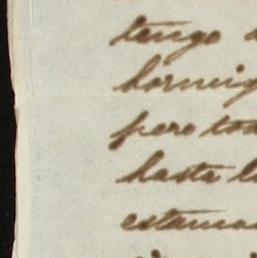 tengo
hormig
pero tod
hasta l
estamo